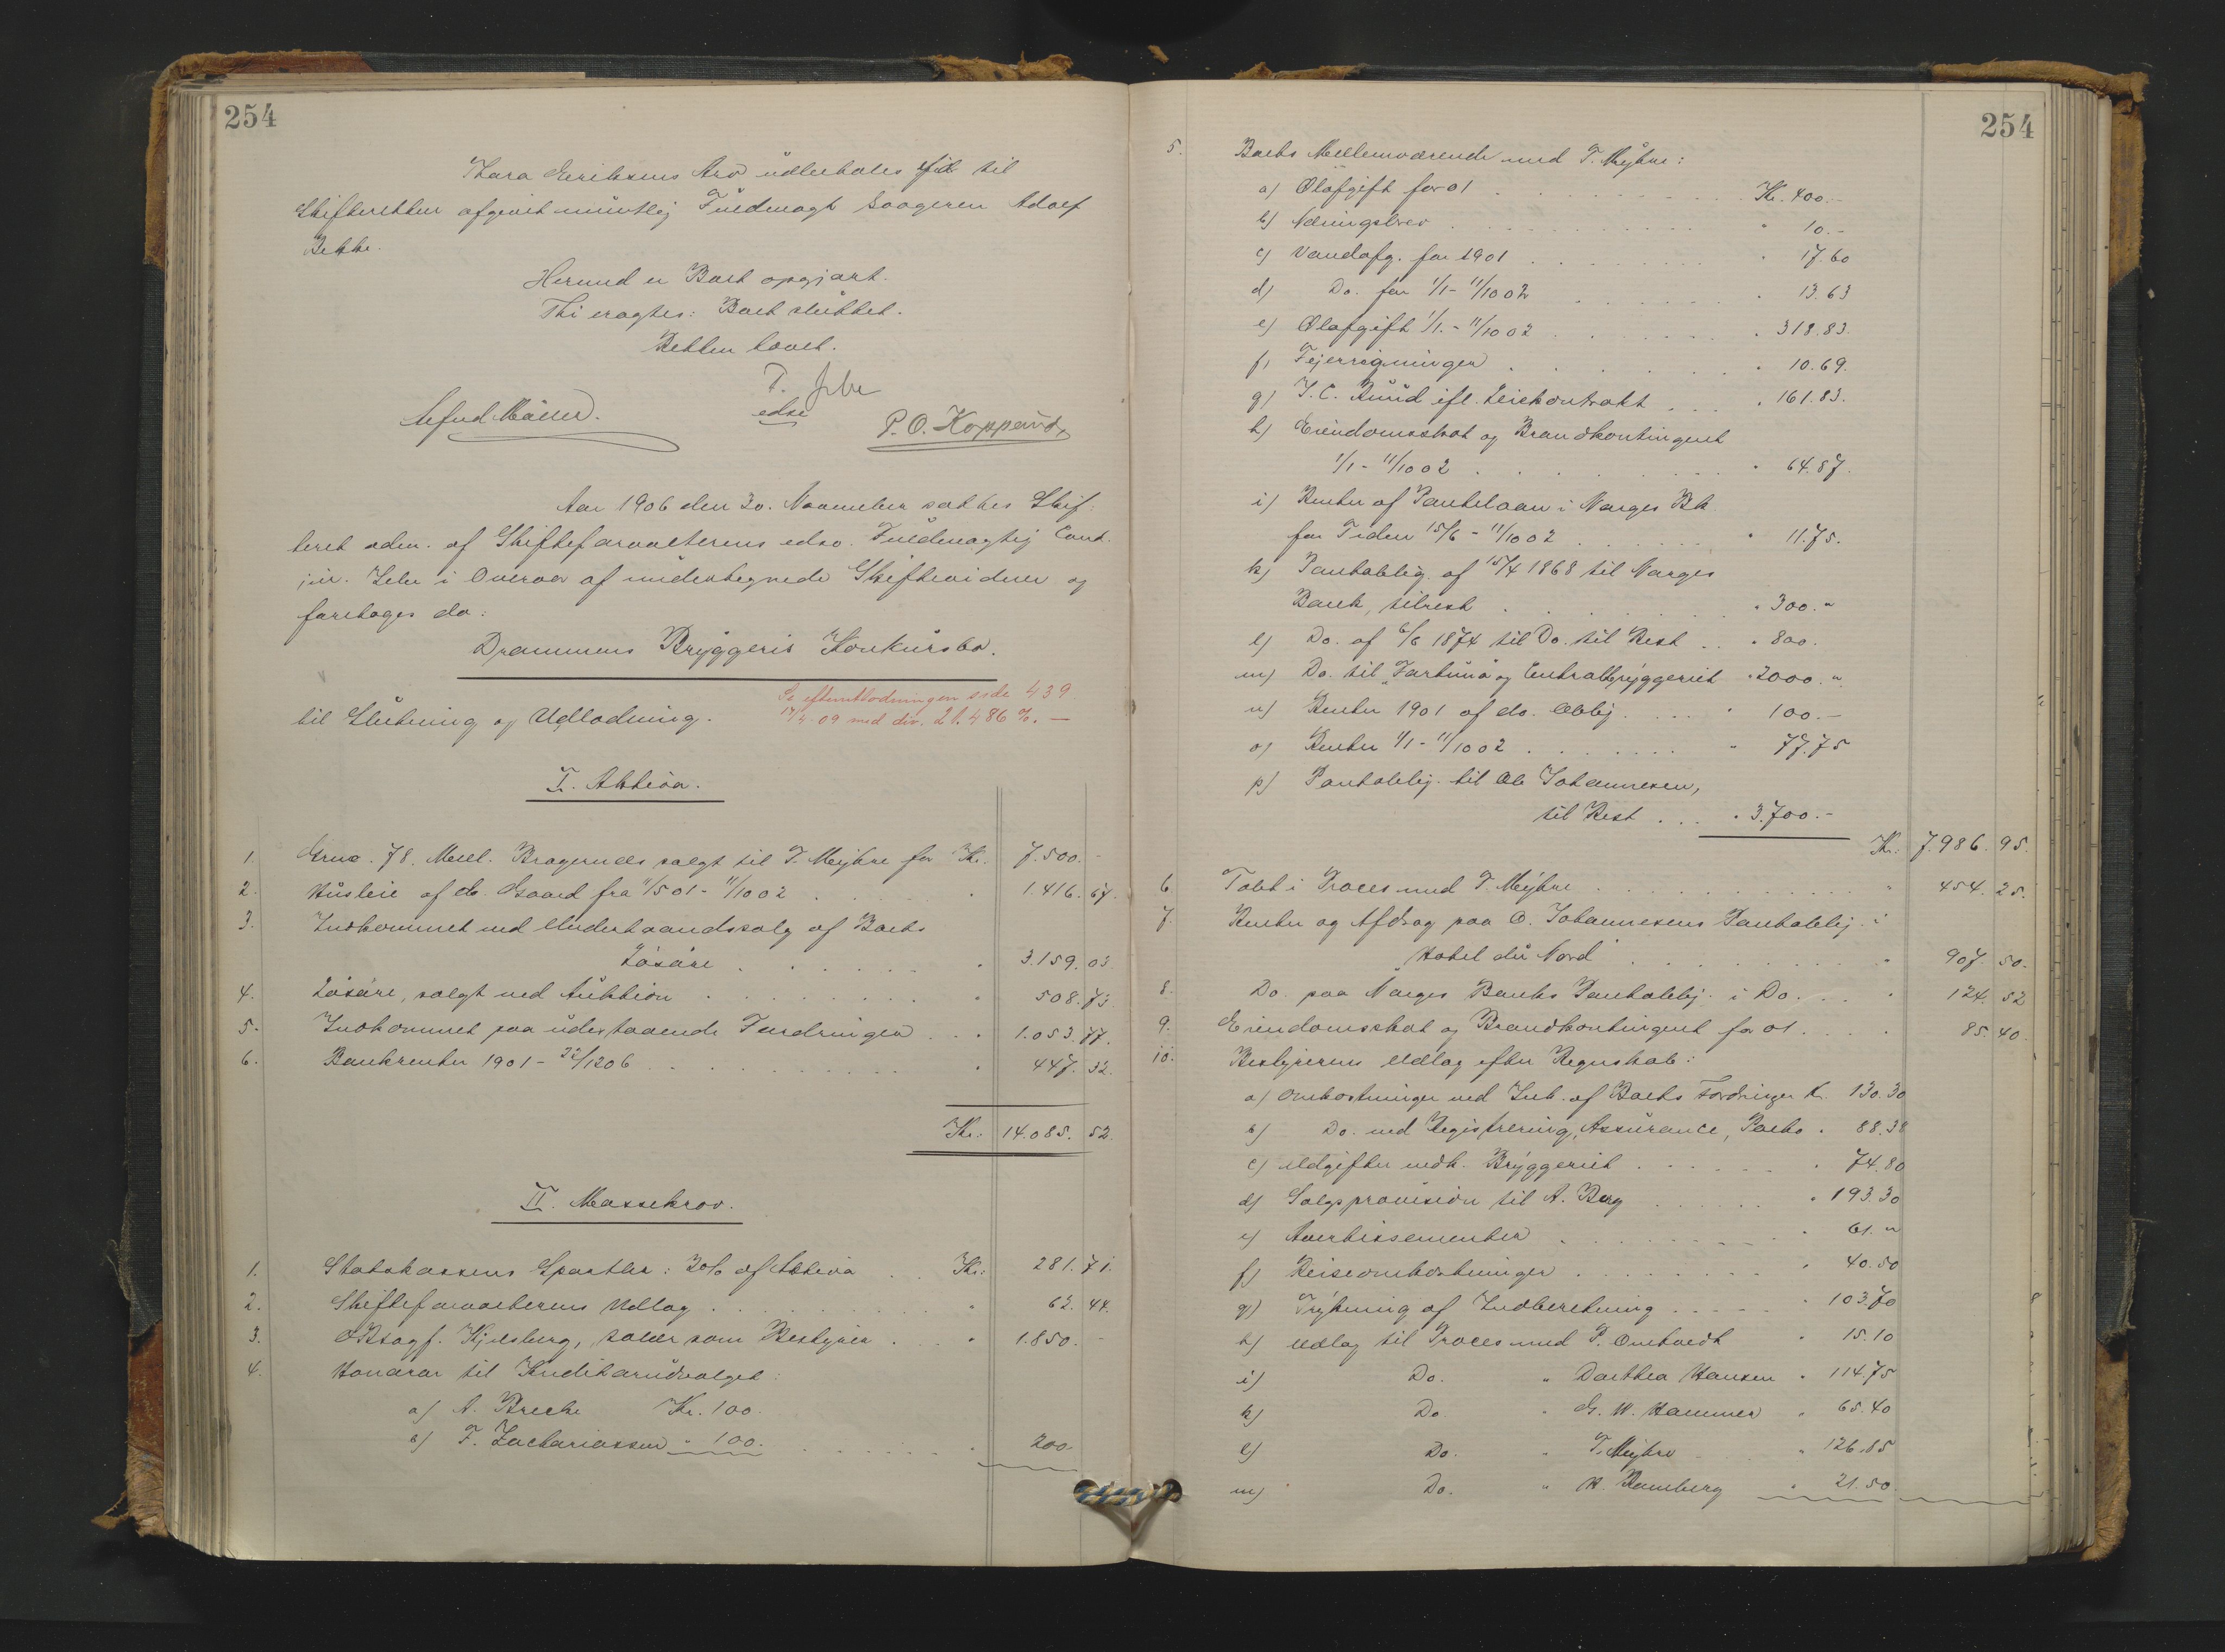 254
Thora Eriksens Arv udbetales ifølge til
Skifteretten afgivet mundtlig Fuldmagt Sagfører Adolf
Bekke.
Hermed er Boet opgjort.
Thi eragtes: Boet sluttet.
Retten hævet.
edsv
P. O. Kopperud
Aar 1906 den 30. November sattes Skif-
teret adm. af Skifteforvalterens edsv. Fuldmægtig Cand.
jur. Jebe i Overvær af undertegnede Skiftevidner og
foretoges da:
Drammens Bryggeris Konkursbo.
Se efterutlodningen side 439
17/4 09 med div. 21.486 %. —
til Slutning og Udlodning.
I. Aktiva.
1. Grno. 78. Mell. Bragernæs solgt til T. Meyhre for Kr. 7.500.-
2. Husleie af do. Gaard fra 11/5 01 - 11/10 02 . . . " 1.416.67.
3. Indkommet ved Underhaandssalg af Boets
Løsøre . . . . . . " 3.159.03.
4. Løsøre, solgt ved Auktion . . . . . . . " 508.73.
5. Indkommet paa udestaaende Fordringer . . " 1.053.77.
6. Bankrenter 1901 - 22/12 06 . . . . . . . " 447.32.
Kr: 14.085.52.
II. Massekrav.
1. Statskassens Sportler: 2 % af Aktiva . . Kr: 281.71.
2. Skifteforvalterens Udlæg . . . . . . . " 62.44.
3. O.R.sagf. Kjelsberg, salær som Bestyrer . . . " 1.850.-
4. Honorar til Kreditorudvalget:
a) A. Brecke Kr. 100.
b) F. Zachariassen " 100. . . . . . . " 200.-
254
5. Boets Mellemværende med T. Meyhre:
a) Ølafgift for 01 . . . . . . . . Kr. 400.-
b) Næringsbrev . . . . . . . . . " 10.-
c) Vandafg. for 1901 . . . . . . . " 17.60
d) Do. for 1/1 - 11/10 02 . . . . . . " 13.63
e) Ølafgift 1/1. - 11/10 02 . . . . . . " 318.83.
f) Feierregninger . . . . . . . . " 10.69.
g) J. C. Ruud ifl. Leiekontrakt . . . " 161.83.
h) Eiendomsskat og Brandkontingent
1/1 - 11/10 02 . . . . . . . . " 64.87.
i) Renter af Pantelaan i Norges Bk
for Tiden 15/6 - 11/10 02 . . . . . . " 11.75.
k) Pantoblig. af 15/4 1868 til Norges
Bank, tilrest . . . . . . . . " 300. "
l) Do. af 6/6 1874 til Do. til Rest . . " 800.
m) Do. til "Fortuna" og Centralbryggeriet " 2000. "
n) Renter 1901 af do. Oblig. . . . . " 100.-
o) Renter 1/1 - 11/10 02 . . . . . . . " 77.75
p) Pantoblig. til Ole Johannesen,
til Rest . . . " 3.700.-
Kr: 7.986.95.
6. Tabt i Proces med T. Meyhre . . . . . . . . . " 454.25.
7. Renter og Afdrag paa O. Johannesens Pantoblig. i
"Hotel du Nord" . . . . . . . . . " 907.50.
8. Do. paa Norges Banks Pantoblig. i Do. . . . " 124.52
9. Eiendomsskat og Brandkontingent for 01. . . . " 85.40.
10. Bestyrerens Udlæg efter Regnskab:
a) Omkostninger ved Ink. af Boets Fordringer Kr. 130.30
b) Do. ved Registrering, Assurance, Porto . " 88.38
c) Udgifter vedk. Bryggeriet . . . . . . " 74.80
d) Salgsprovision til A. Berg . . . . . . " 193.30
e) Avertissementer . . . . . . . . . " 61. "
f) Reiseomkostninger . . . . . . . . " 40.50
g) Trykning af Indberetning . . . . . " 103.70
h) Udlæg til Proces med P. Omholdt " 15.10
i) Do. " Dorthea Hansen " 114.75
k) Do " G. W. Hammer " 65.40
l) Do. " T. Meyhre . . " 126.85
m) Do. " H. Ramberg " 21.50